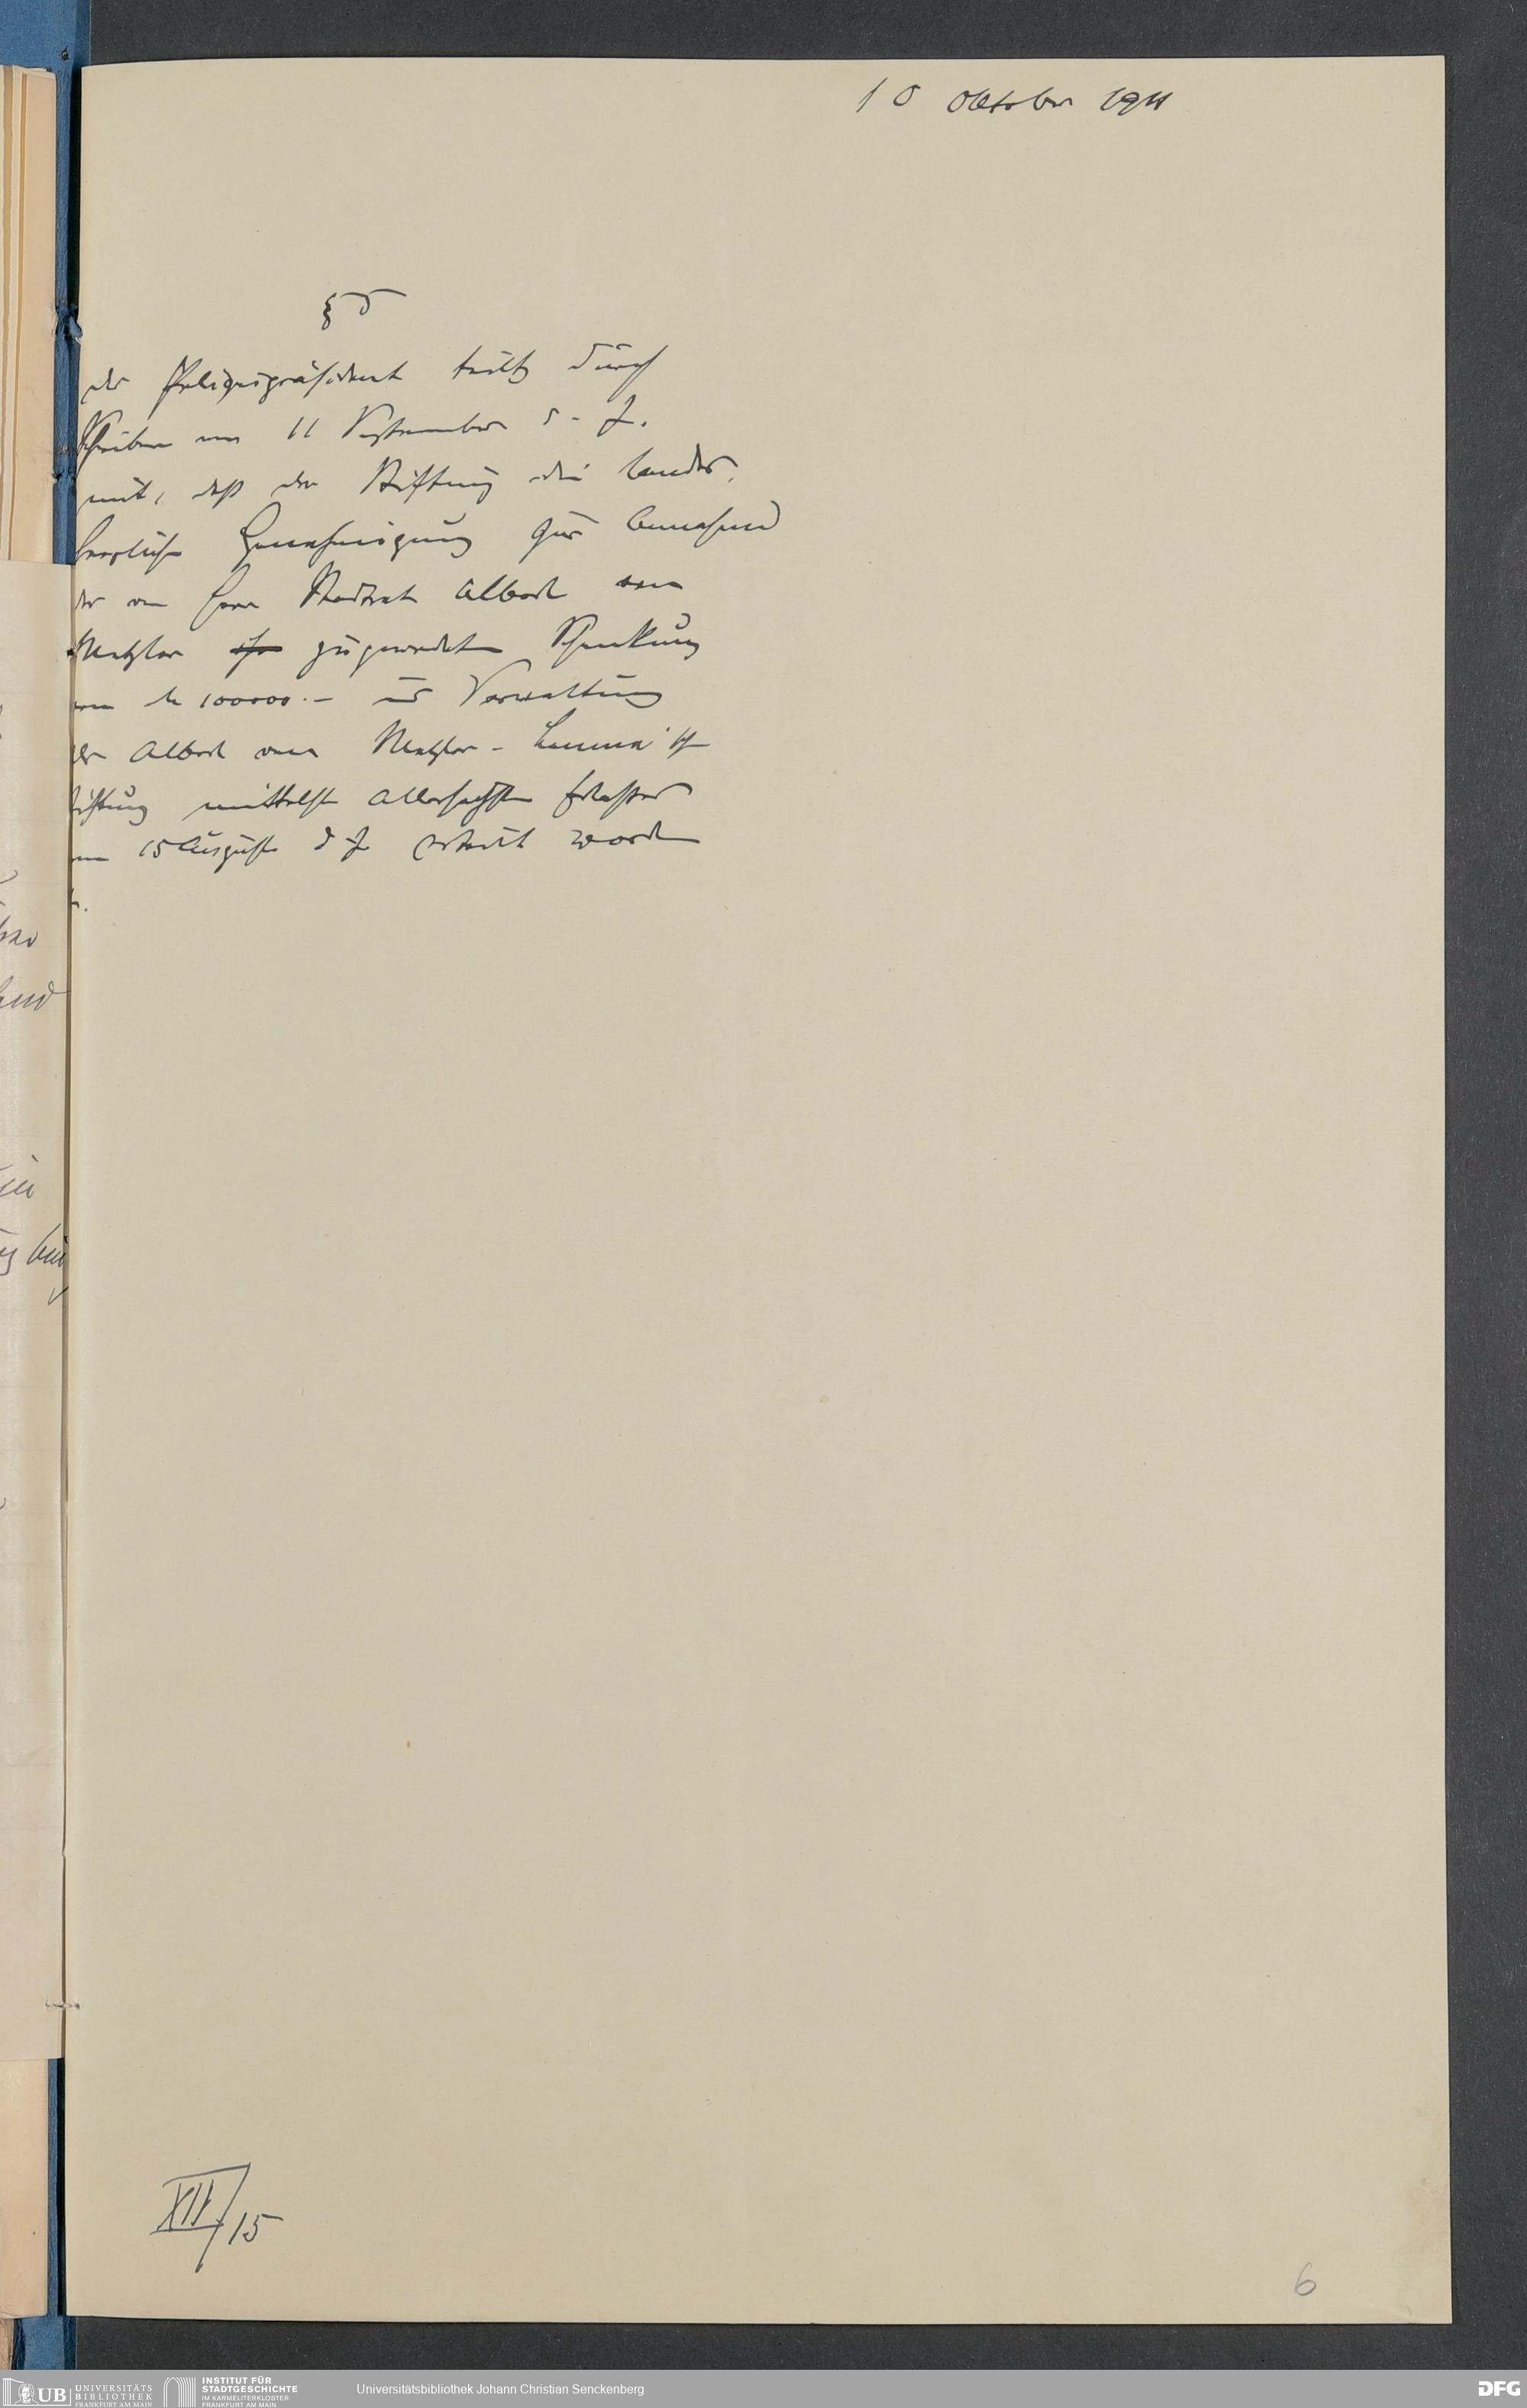 10 Oktober 1911
§ 5
der Polizeipräsident teilt durch
Schreiben vom 11 September d. J.
mit, daß der Stiftung die landes-
herrliche Genehmigung zur Annahme
der von Herrn Stadtrat Albert von
Metzler zugewendeten Schenkung
von M 100000.- zur Verwaltung
der Albert von Metzler-
Stiftung mittelst Allerhöchsten Erlasses
vom 15 August d J erteilt worden
XII/15
6
UB UNIVERSITÄTS
BIBLIOTHEK
FRANKFURT AM MAIN
INSTITUT FÜR
STADTGESCHICHTE
IM KARMELITERKLOSTER
FRANKFURT AM MAIN
Universitätsbibliothek Johann Christian Senckenberg
DFG